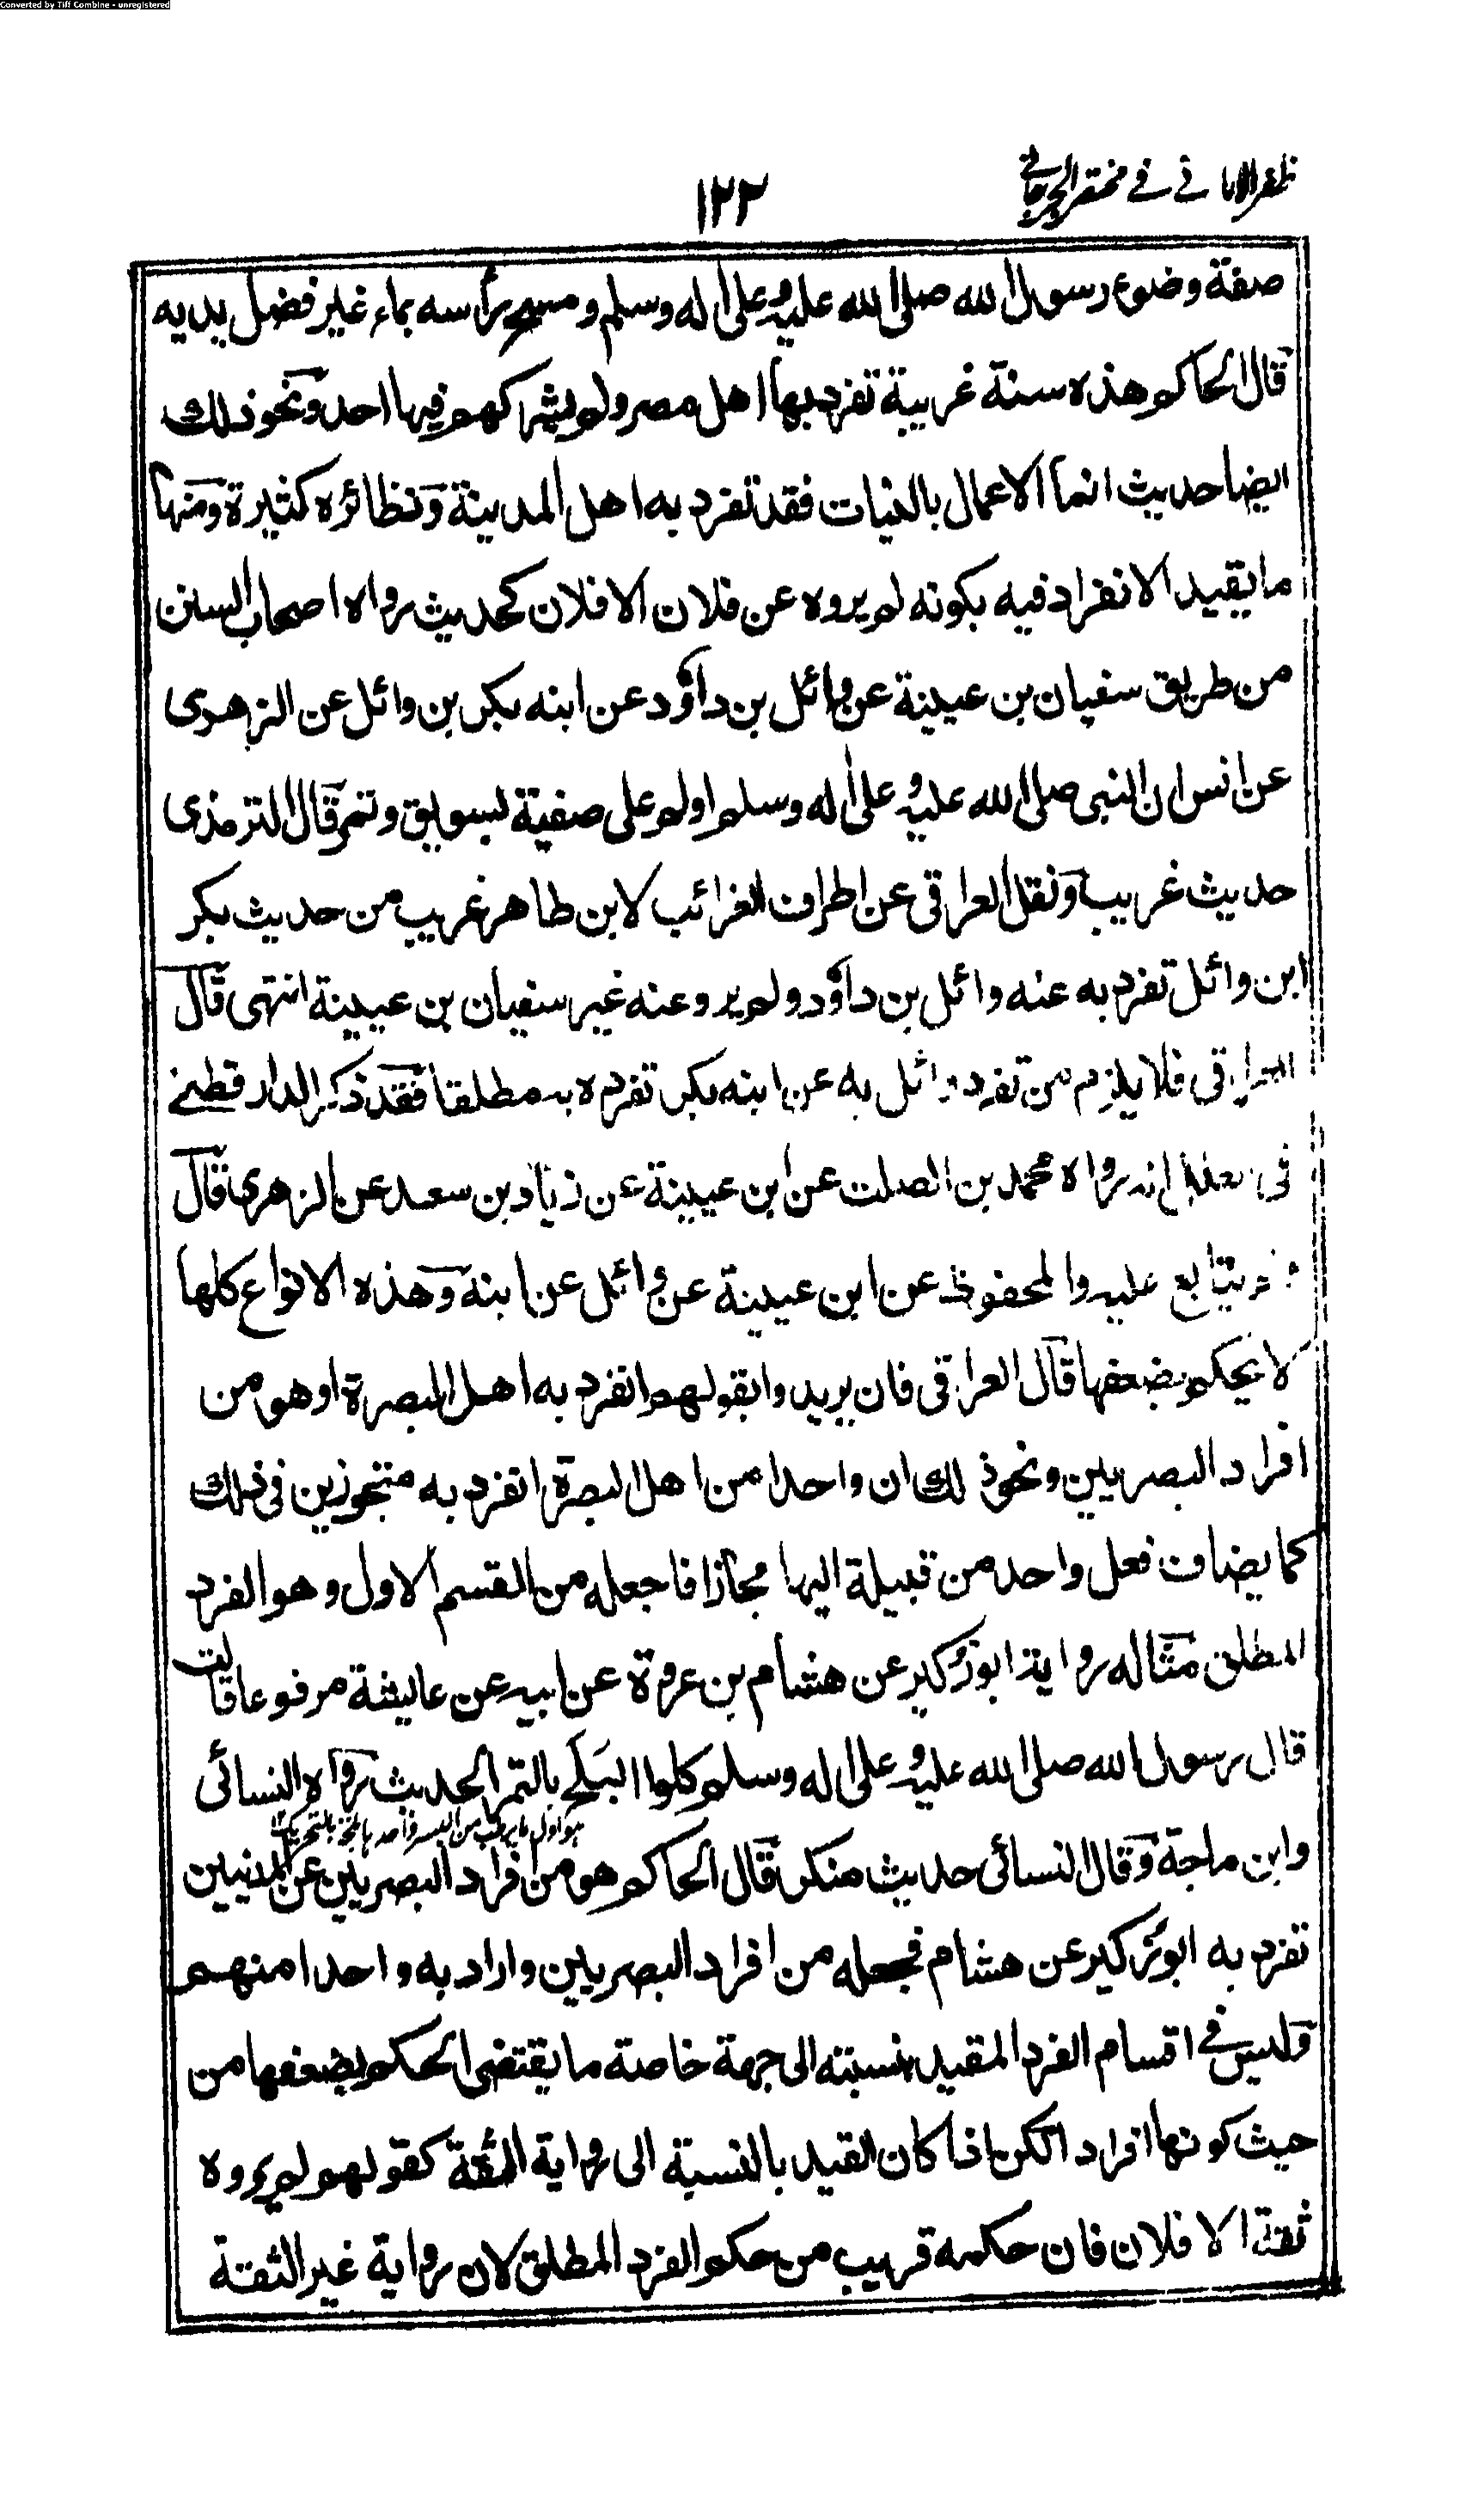 Converted by Tiff Combine - unregistered
ظفر الامانى فى مختصر الجرجانى
١٢٢
صفة وضوء رسول الله صلى الله عليه وعلى اله وسلم ومسح رأسه بماء غير فضل يديه
قال الحاكم هذه سنة غريبة تفرد بها اهل مصر ولم يشركهم فيها احد ونحو ذلك
ايضا حديث انما الاعمال بالنيات فقد تفرد به اهل المدينة ونظائره كثيرة ومنها
ما يقيد الانفراد فيه بكونه لم يروه عن فلان الا فلان كحديث رواه اصحاب السنن
من طريق سفيان بن عيينة عن وائل بن داؤد عن ابنه بكر بن وائل عن الزهرى
عن انس ان النبى صلى الله عليه وعلى اله وسلم اولم على صفية بسويق وتمر قال الترمذى
حديث غريب ونقل العراقى عن اطراف الغرائب لابن طاهر غريب من حديث بكر
ابن وائل تفرد به عنه وائل بن داؤد ولم يروعنه غير سفيان بن عيينة انتهى قال
العراقى فلا يلزم من تفرد وائل به عن ابنه بكر تفرده به مطلقا فقد ذكر الدارقطنى
فى العلل انه رواه محمد بن الصلت عن ابن عيينة عن زياد بن سعد عن الزهرى قال
ولم يتابع عليه والمحفوظ عن ابن عيينة عن وائل عن ابنه وهذه الانواع كلها
لا يحكم بضعفها قال العراقى فان يريدوا بقولهم انفرد به اهل البصرة او هو من
افراد البصريين ونحو ذلك ان واحدا من اهل البصرة انفرد به متجوزين فى ذلك
كما يضاف فعل واحد من قبيلة اليها مجازا فاجعله من القسم الاول وهو الفرد
المطلق مثاله رواية ابو زكير عن هشام بن عروة عن ابيه عن عايشة مرفوعا قالت
قال رسول الله صلى الله عليه وعلى اله وسلم كلوا البلح بالتمر الحديث رواه النسائى
وابن ماجة وقال النسائى حديث منكر قال الحاكم هو من افراد البصريين عن المدنيين
تفرد به ابو زكير عن هشام فجعله من افراد البصريين واراد به واحدا منهم
فليس فى اقسام الفرد المقيد بنسبته الى جهة خاصة ما يقتضى الحكم بضعفها من
حيث كونها افراد الكن اذا كان القيد بالنسبة الى رواية الثقة كقولهم لم يروه
ثقة الا فلان فان حكمه قريب من حكم الفرد المطلق لان رواية غير الثقة